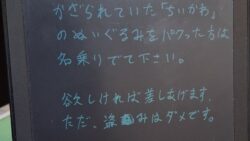 かざられていた「ちいかわ」
のぬいぐるみをパクった方は
名乗りでて下さい。
欲しければ差しあげます。
ただ、盗みはダメです。